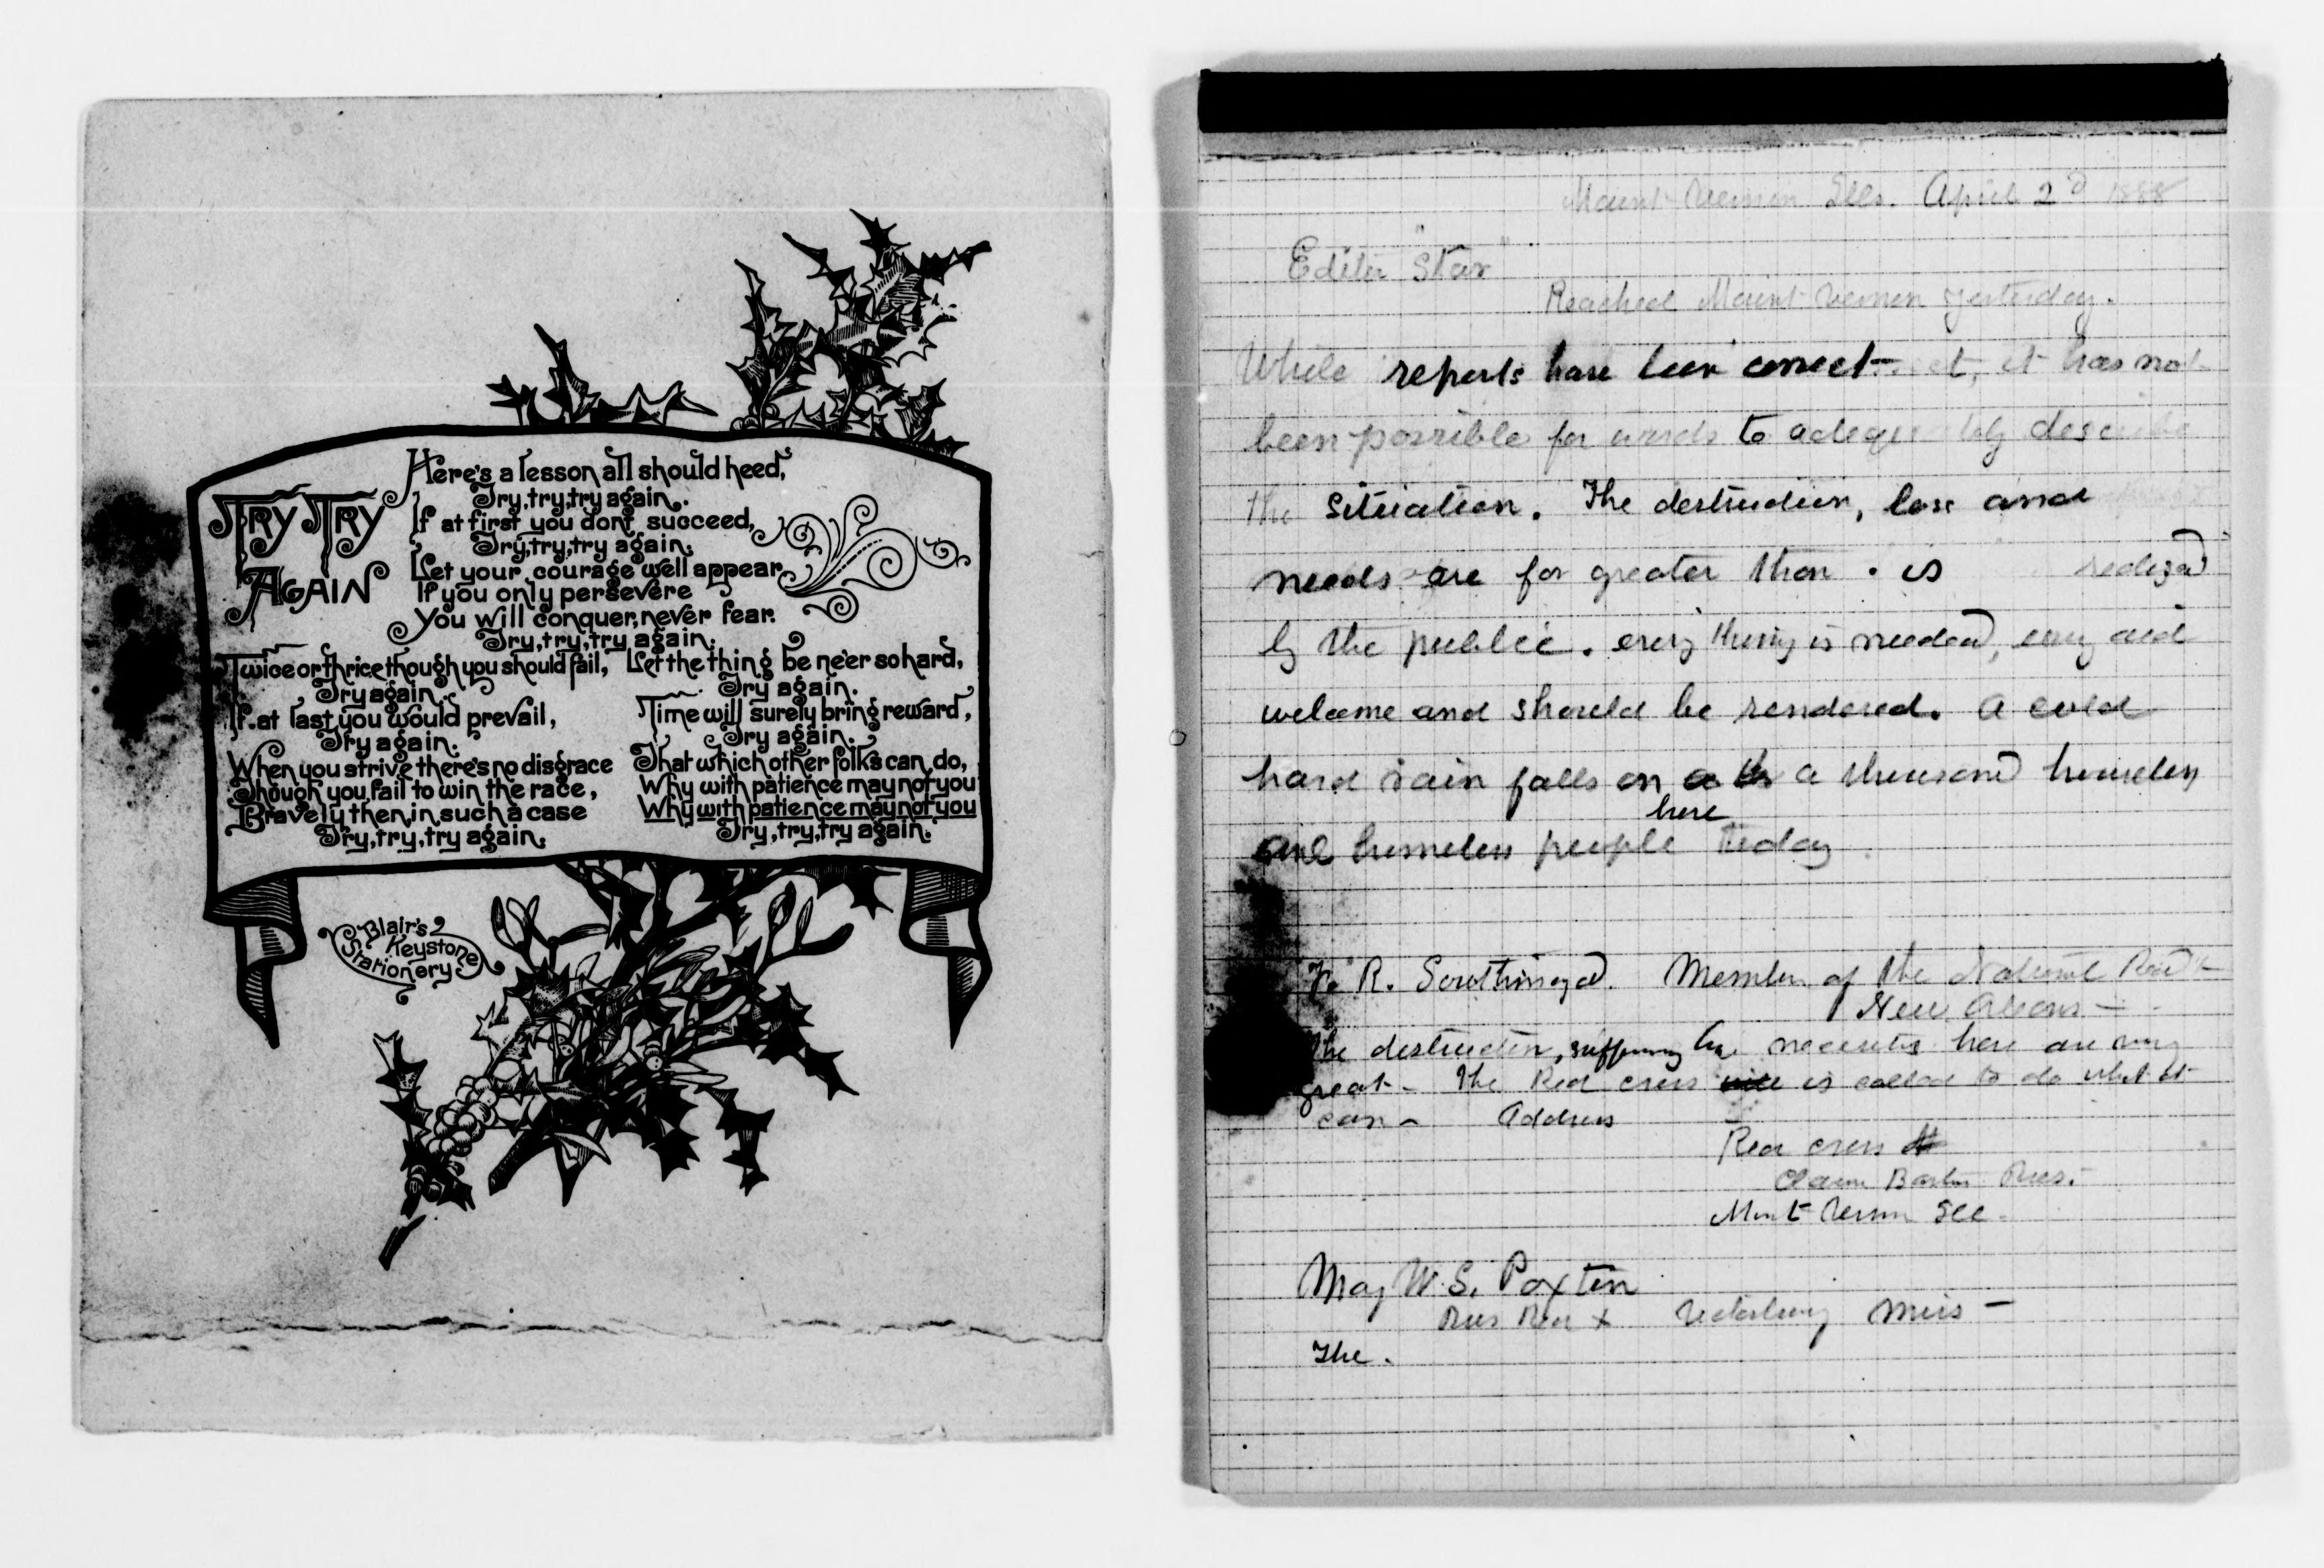 Here's a lesson all should heed,
Try, try, try again.
If at first you dont succeed,
Try, try, try again.
Let your courage well appear
If you only persevere
You will conquer, never fear.
Try, try, try again.
TRY TRY
AGAIN
Twice or thrice though you should fail,
Try again.
If at last you would prevail,
Try again.
When you strive there's no disgrace
Though you fail to win the race,
Bravely then in such a case
Try, try, try again.
Let the thing be ne'er so hard,
Try again.
Time will surely bring reward,
Try again.
That which other folks can do,
Why with patience may not you
Why with patience may not you
Try, try, try again.
Blair's
Keystone
Stationery
Mount Vernon Ills. April 2d 1888
Editor "Star"
Reached Mount Vernon yesterday.
While reports have been correct, it has not
been possible for words to adequately describe
the situation. The destruction, loss and
needs are far greater than is realized
by the public. every thing is needed, any aid
welcome and should be rendered. A cold
hard rain falls on a th a thousand homeless
and homeless people here today
R. Southmayd. Member of the National Red +
New Orleans -
The destruction, suffering necessities here are very
great - The Red cross will is called to do what it
can - Address
Red cross
Clara Barton Pres.
Mount Vernon Ill -
Maj W. S. Paxton
Pres Red X Vicksburg Miss -
The.